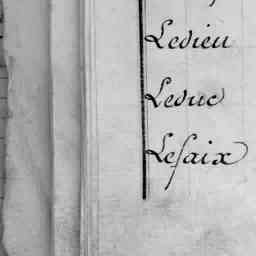 Ledieu
Leduc
Lefaix